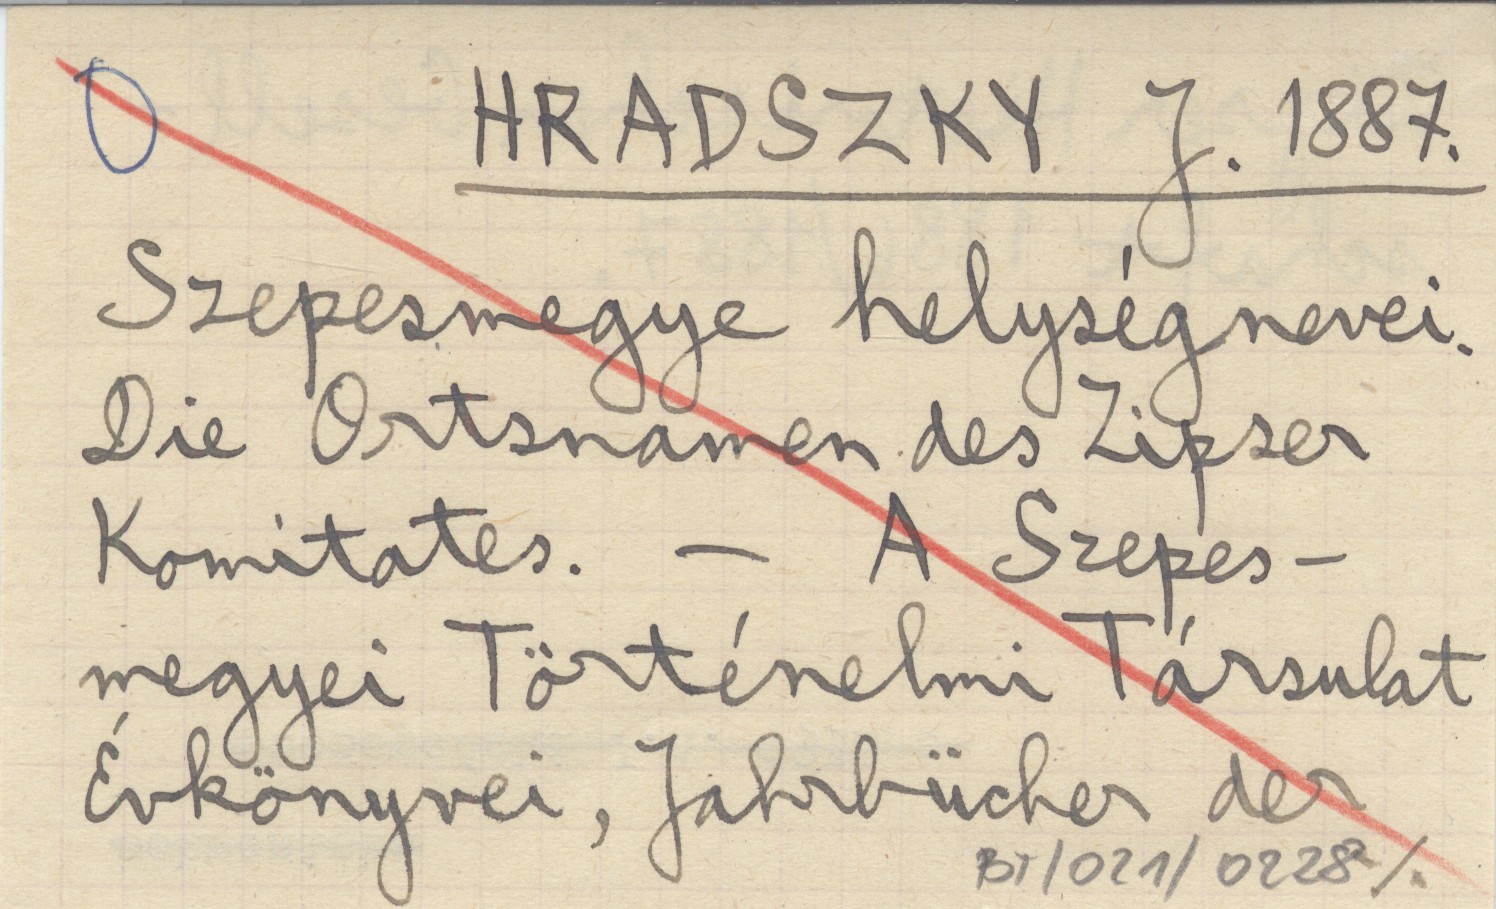 HRADSZKY J. 1887.
Szepesmegye helységnevei.
Die Ortsnamen des Zipser
Komitates. — A Szepes-
megyei Történelmi Társulat
Évkönyvei, Jahrbücher der
BT/021/0228 ./.